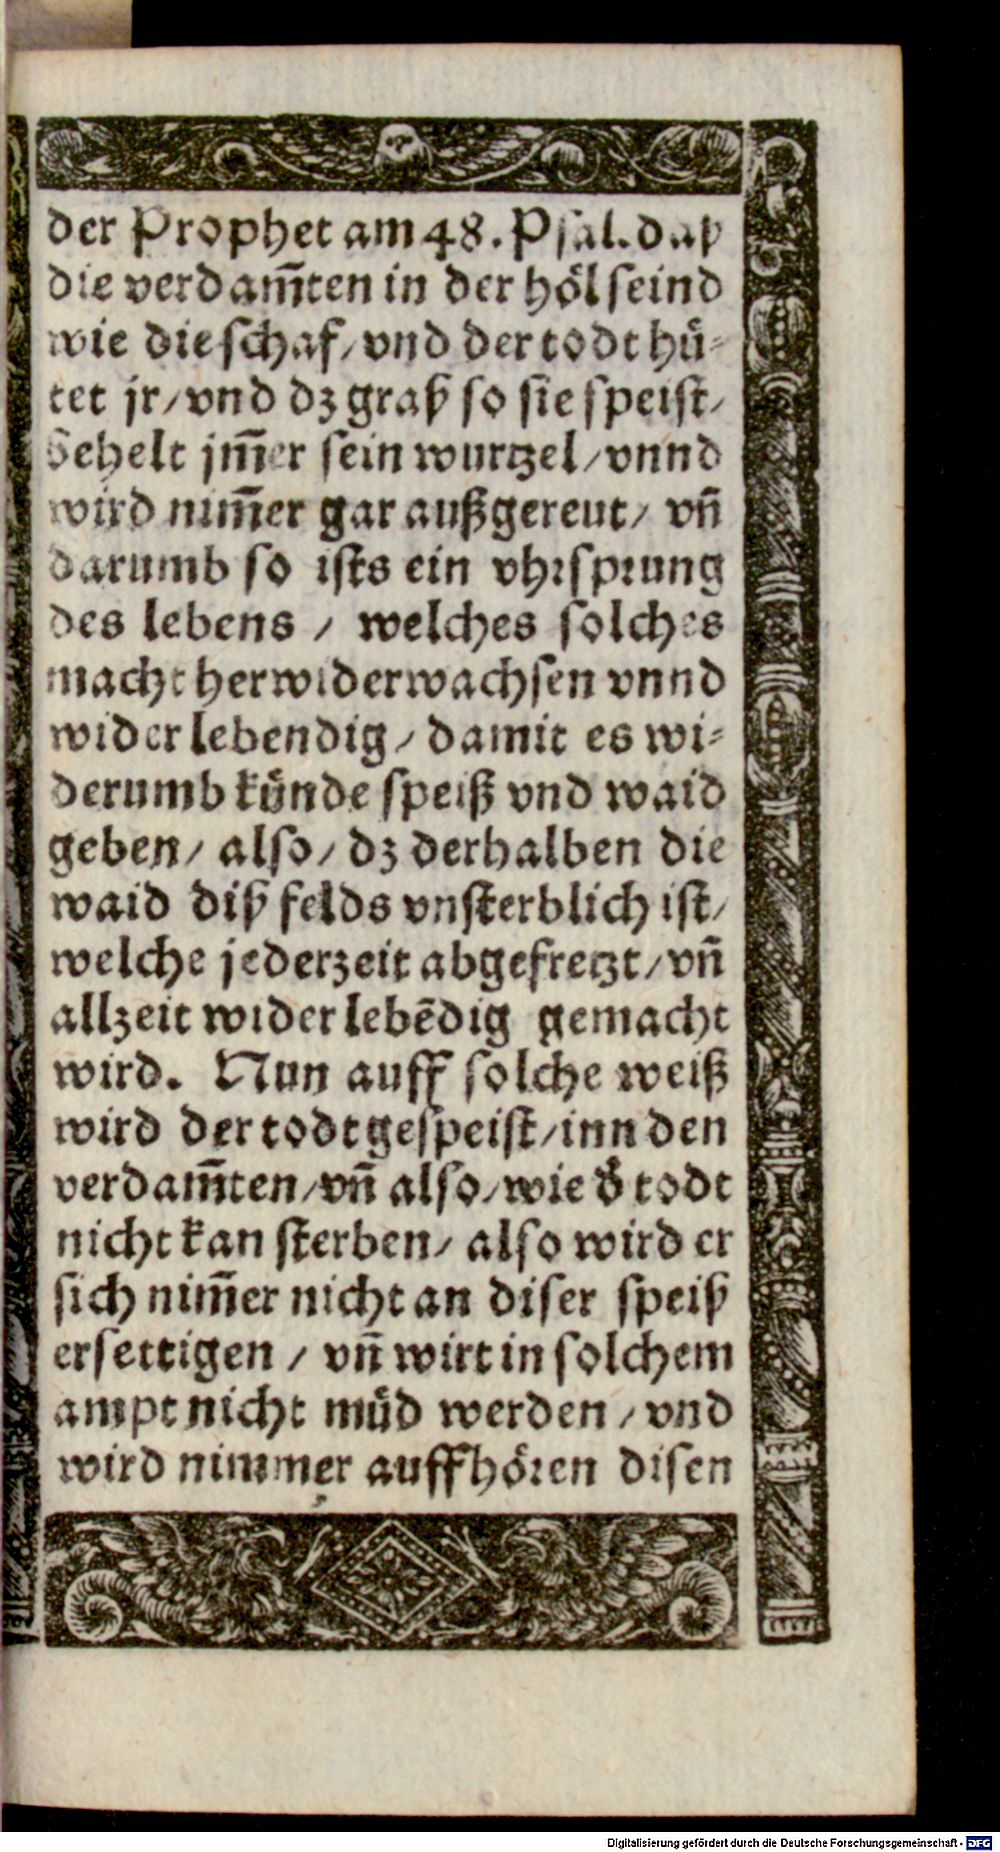 der Prophet am 48. Psal. daß
die verdam̃ten in der hoͤl seind
wie die schaf / vnd der todt huͤ⸗
tet jr / vnd dz graß so sie speist /
behelt jm̃er sein wurtzel / vnnd
wird nim̃er gar außgereut / vñ
darumb so ists ein vhrsprung
des lebens / welches solches
macht herwider wachsen vnnd
wider lebendig / damit es wi⸗
derumb kuͤnde speiß vnd waid
geben / also / dz derhalben die
waid diß felds vnsterblich ist /
welche jederzeit abgefretzt / vñ
allzeit wider lebẽdig gemacht
wird. Nun auff solche weiß
wird der todt gespeist / inn den
verdam̃ten / vñ also / wie d̕ todt
nicht kan sterben / also wird er
sich nim̃er nicht an diser speiß
ersettigen / vñ wirt in solchem
ampt nicht muͤd werden / vnd
wird nimmer auffhoͤren disen
Digitalisierung gefördert durch die Deutsche Forschungsgemeinschaft - DFG